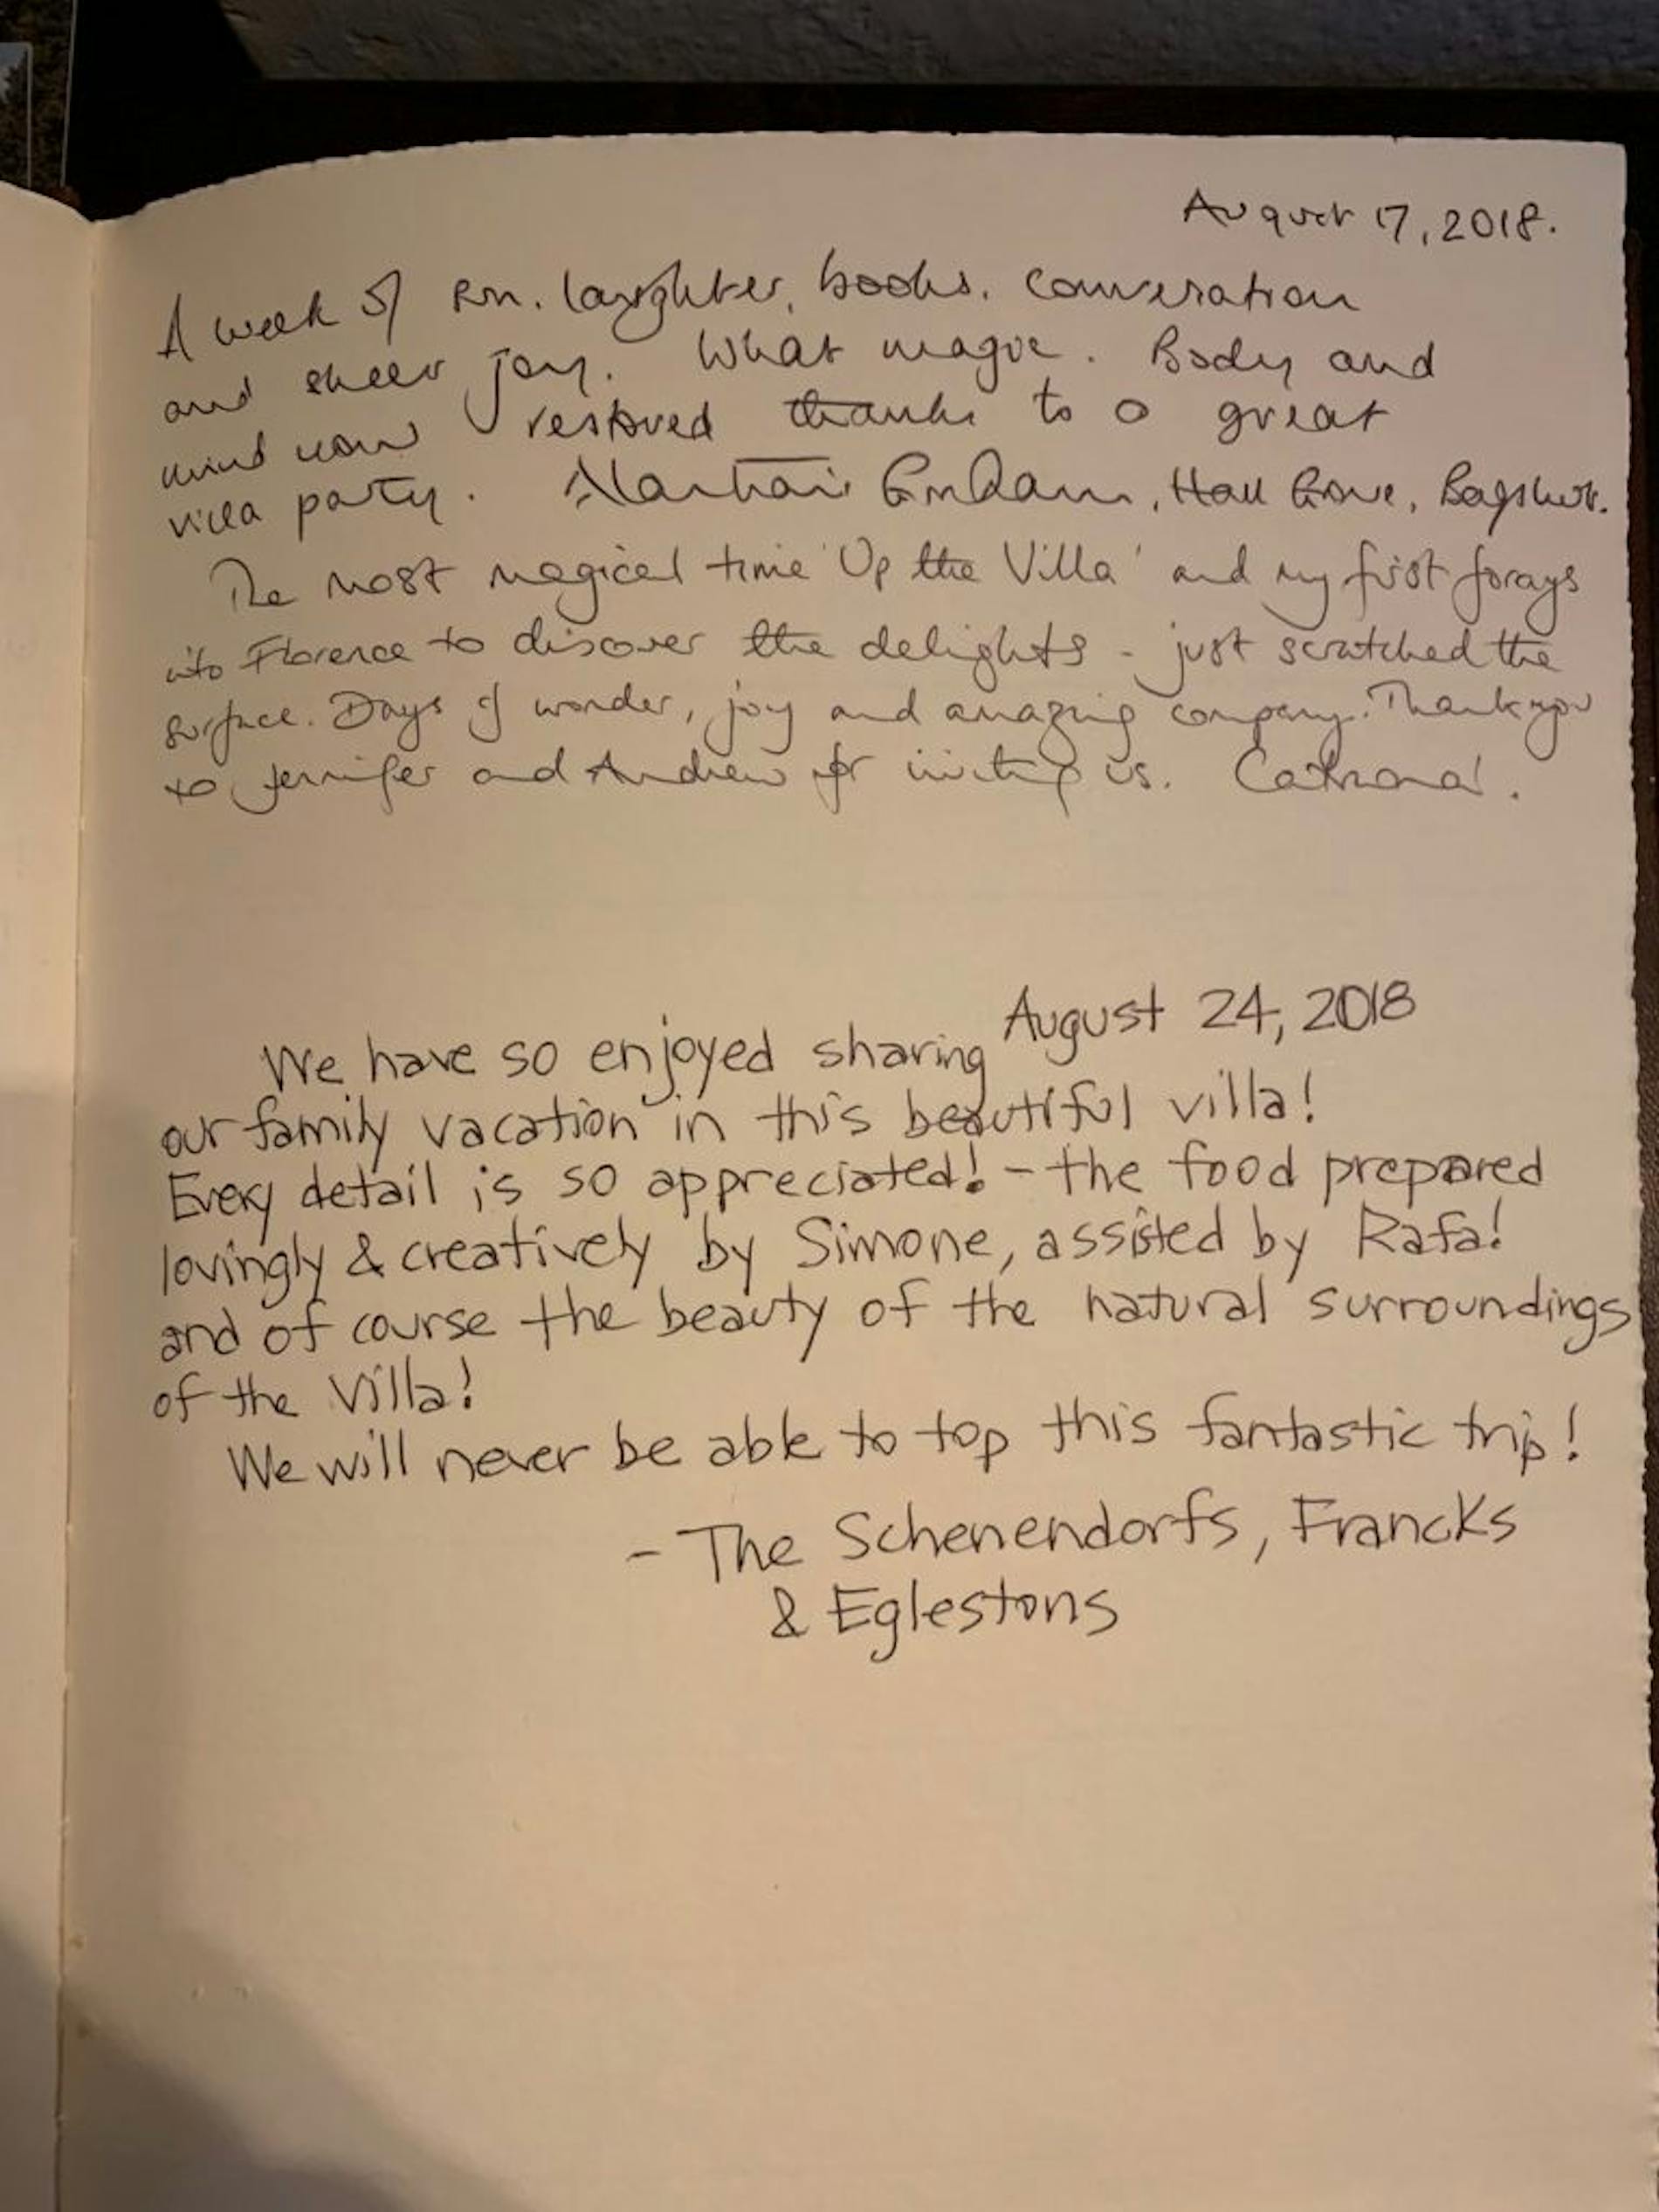 August 17, 2018.
A week of sun, laughter, books, conversation
and sheer joy. What magic. Body and
mind now restored thanks to a great
villa party. Hall Grove, Bagshot.
The most magical time 'Up the Villa' and my first forays
into Florence to discover the delights - just scratched the
surface. Days of wonder, joy and amazing company. Thank you
to Jennifer and Andrew for inviting us. Catriona.
August 24, 2018
We have so enjoyed sharing
our family vacation in this beautiful villa!
Every detail is so appreciated! - the food prepared
lovingly & creatively by Simone, assisted by Rafa!
and of course the beauty of the natural surroundings
of the Villa!
We will never be able to top this fantastic trip!
- The Schenendorfs, Francks
& Eglestons